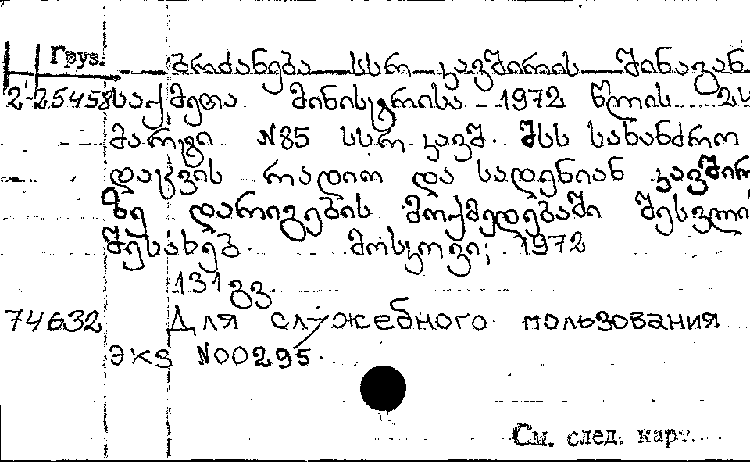 Груз. ბრძანება სსრ კავშირის შინაგან
2-25458 საქმეთა მინისტრისა 1972 წლის 24
მარტი N85 სსრ კავშ. შსს სახანძრო
დაცვის რადიო და სადენიან კავშირ
ზე დარიგების მოქმედებაში შესვლი
შესახებ. მოსკოვი; 1972
131 გვ.
74632 Для служебного пользования
экз N00295.
См. след. карт.